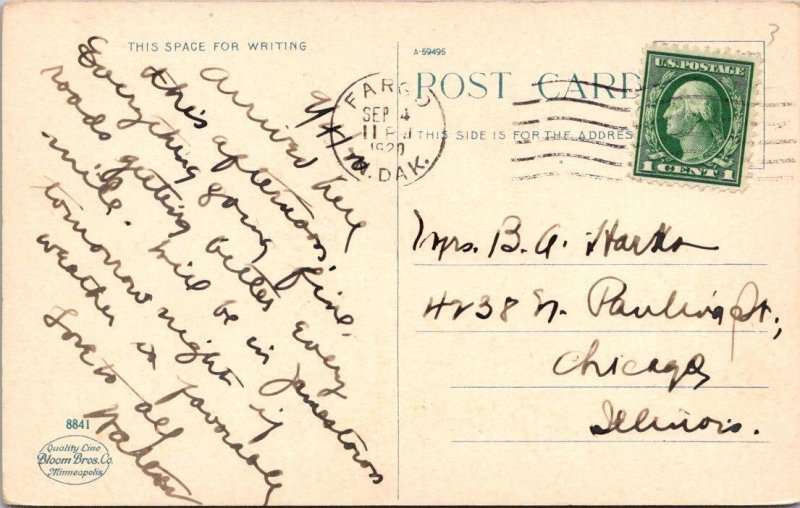 THIS SPACE FOR WRITING
9/4/20
Arrived here
this afternoon.
Everything going fine.
roads getting better every
mile. Will be in Jamestown
tomorrow night if
weather is favorable
Love to all
8841
Quality Line
Bloom Bros. Co.
Minneapolis
A-59495
POST CARD
THIS SIDE IS FOR THE ADDRES
FARGO
SEP 4
11 PM
1920
N. DAK.
U.S. POSTAGE
1 CENT 1
3
Mrs. B. A.
4238 N. Paulina St.,
Chicago,
Illinois.